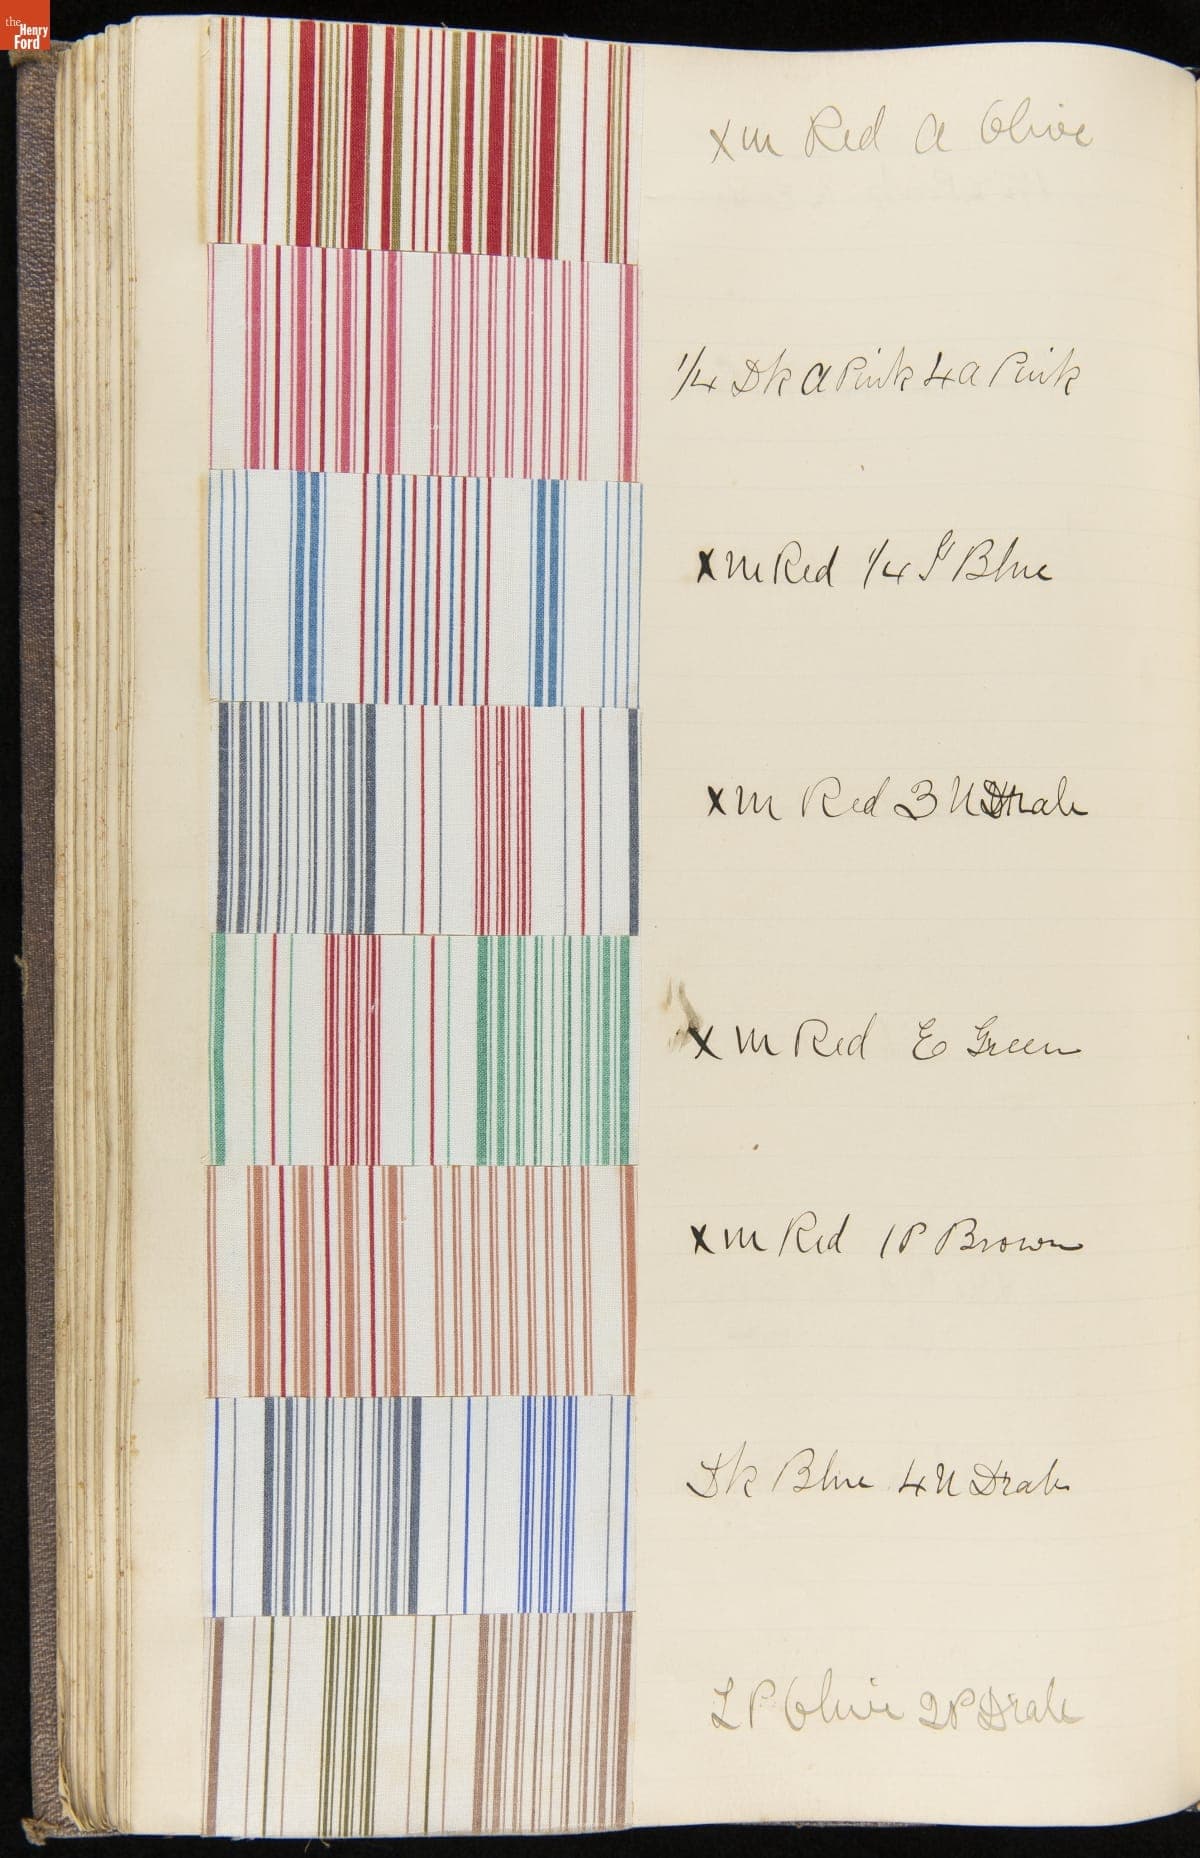 the Henry Ford
xm Red A Olive
1/4 Dk A Pink 4 A Pink
xm Red 1/4 G Blue
xm Red 3 N Drab
xm Red E Green
xm Red 1 P Brown
Dk Blue 4 N Drab
L P Olive 2 P Drab